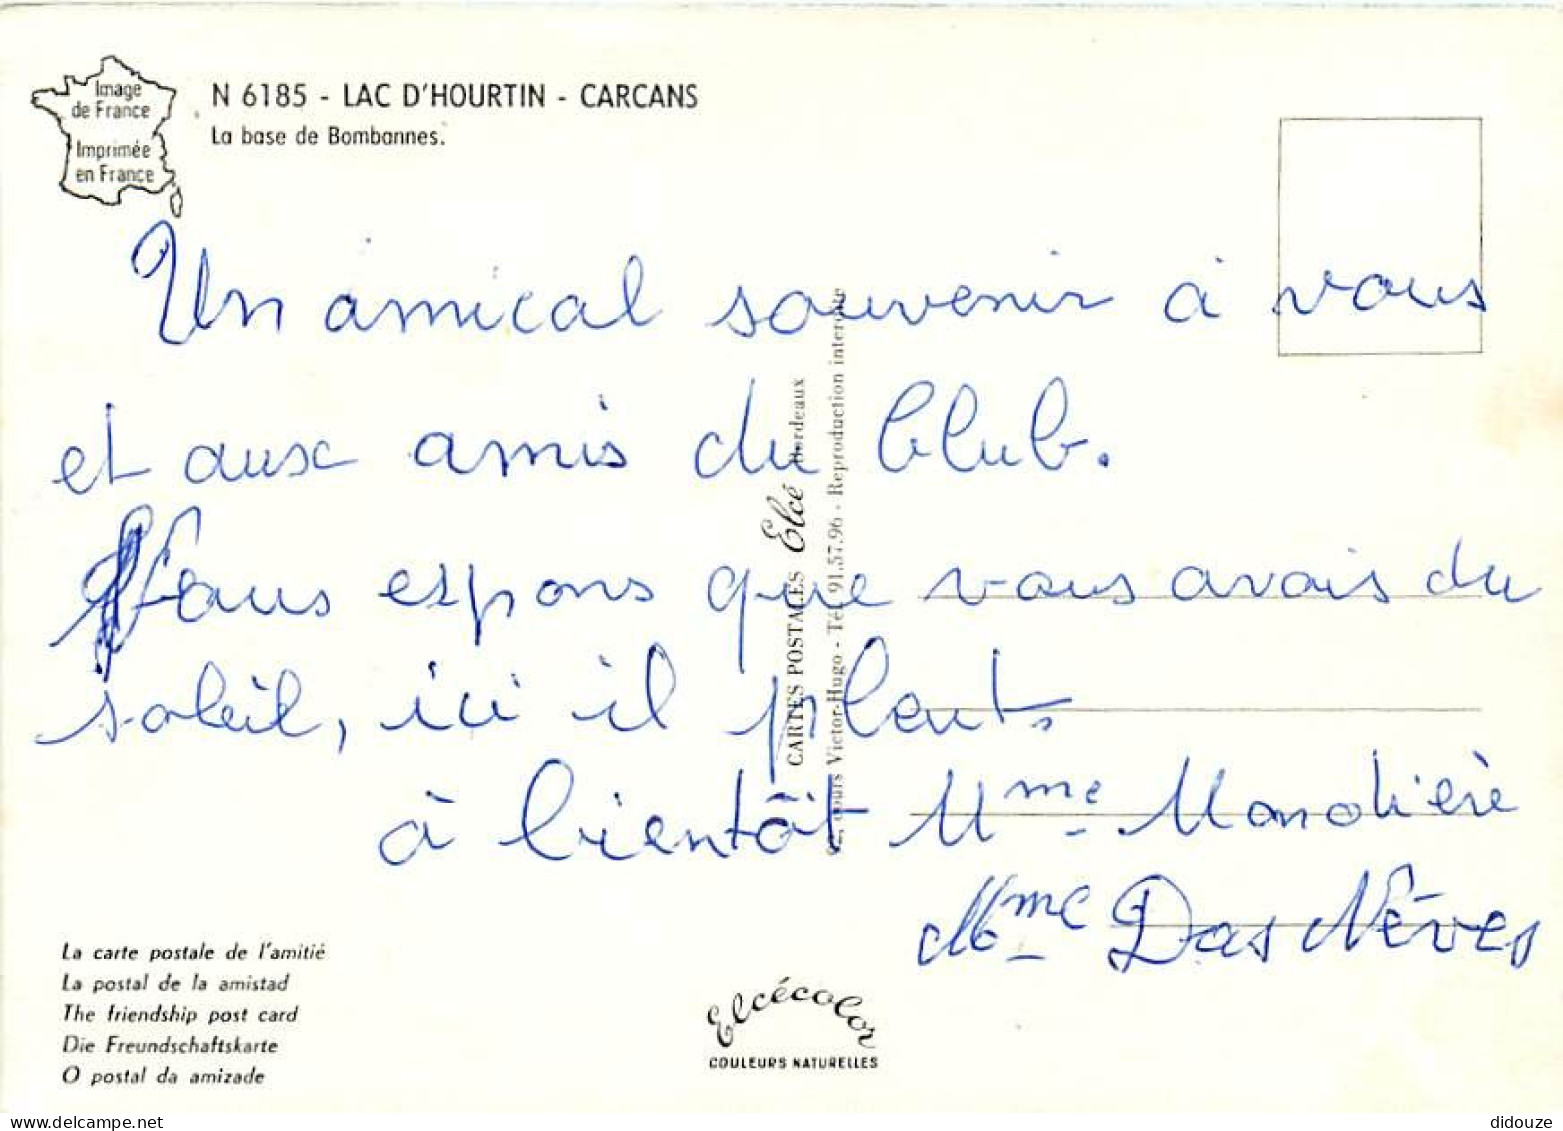 Image
de France
Imprimée
en France
N 6185 - LAC D'HOURTIN - CARCANS
La base de Bombannes.
Un amical souvenir à vous
et aux amis du Club.
Nous espons que vous avais du
soleil, ici il pleut
à bientôt Mme Manolière
Mme Das Nèves
CARTES POSTALES Elcé Bordeaux
cours Victor-Hugo - Tél. 91.57.96 - Reproduction interdite
La carte postale de l'amitié
La postal de la amistad
The friendship post card
Die Freundschaftskarte
O postal da amizade
Elcécolor
COULEURS NATURELLES
didouze